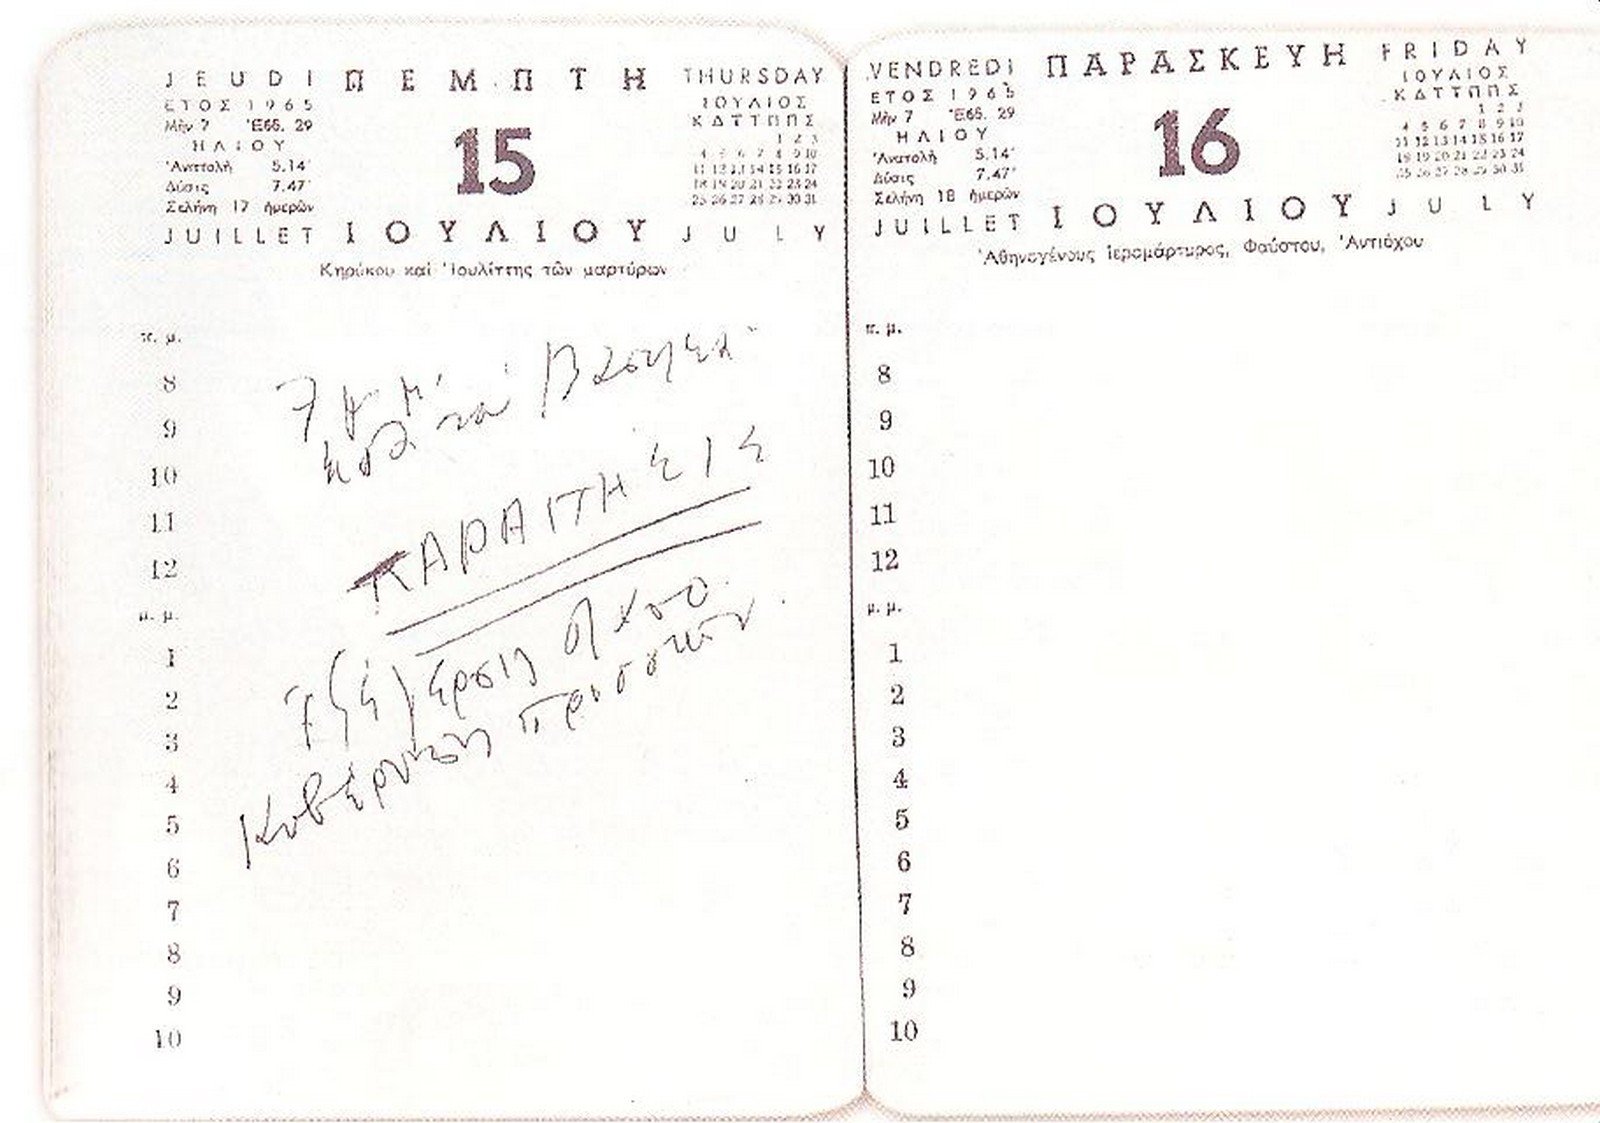 JEUDI ΠΕΜΠΤΗ THURSDAY
ΕΤΟΣ 1965 ΙΟΥΛΙΟΣ
Μὴν 7 Ἑβδ. 29 Κ Δ Τ Τ Π Π Σ
ΗΛΙΟΥ 15 1 2 3
Ἀνατολὴ 5.14' 4 5 6 7 8 9 10
Δύσις 7.47' 11 12 13 14 15 16 17
Σελήνη 17 ἡμερῶν 18 19 20 21 22 23 24
25 26 27 28 29 30 31
JUILLET ΙΟΥΛΙΟΥ JULY
Κηρύκου καὶ Ἰουλίττης τῶν μαρτύρων
π. μ.
8
9
10
11
12
μ. μ.
1
2
3
4
5
6
7
8
9
10
7 μ.μ.
στὸν Βασιλιά
ΠΑΡΑΙΤΗΣΙΣ
Ἐξέγερσις
Κυβέρνηση προδοτῶν.
VENDREDI ΠΑΡΑΣΚΕΥΗ FRIDAY
ΕΤΟΣ 1965 ΙΟΥΛΙΟΣ
Μὴν 7 Ἑβδ. 29 Κ Δ Τ Τ Π Π Σ
ΗΛΙΟΥ 16 1 2 3
Ἀνατολὴ 5.14' 4 5 6 7 8 9 10
Δύσις 7.47' 11 12 13 14 15 16 17
Σελήνη 18 ἡμερῶν 18 19 20 21 22 23 24
25 26 27 28 29 30 31
JUILLET ΙΟΥΛΙΟΥ JULY
Ἀθηνογένους ἱερομάρτυρος, Φαύστου, Ἀντιόχου
π. μ.
8
9
10
11
12
μ. μ.
1
2
3
4
5
6
7
8
9
10